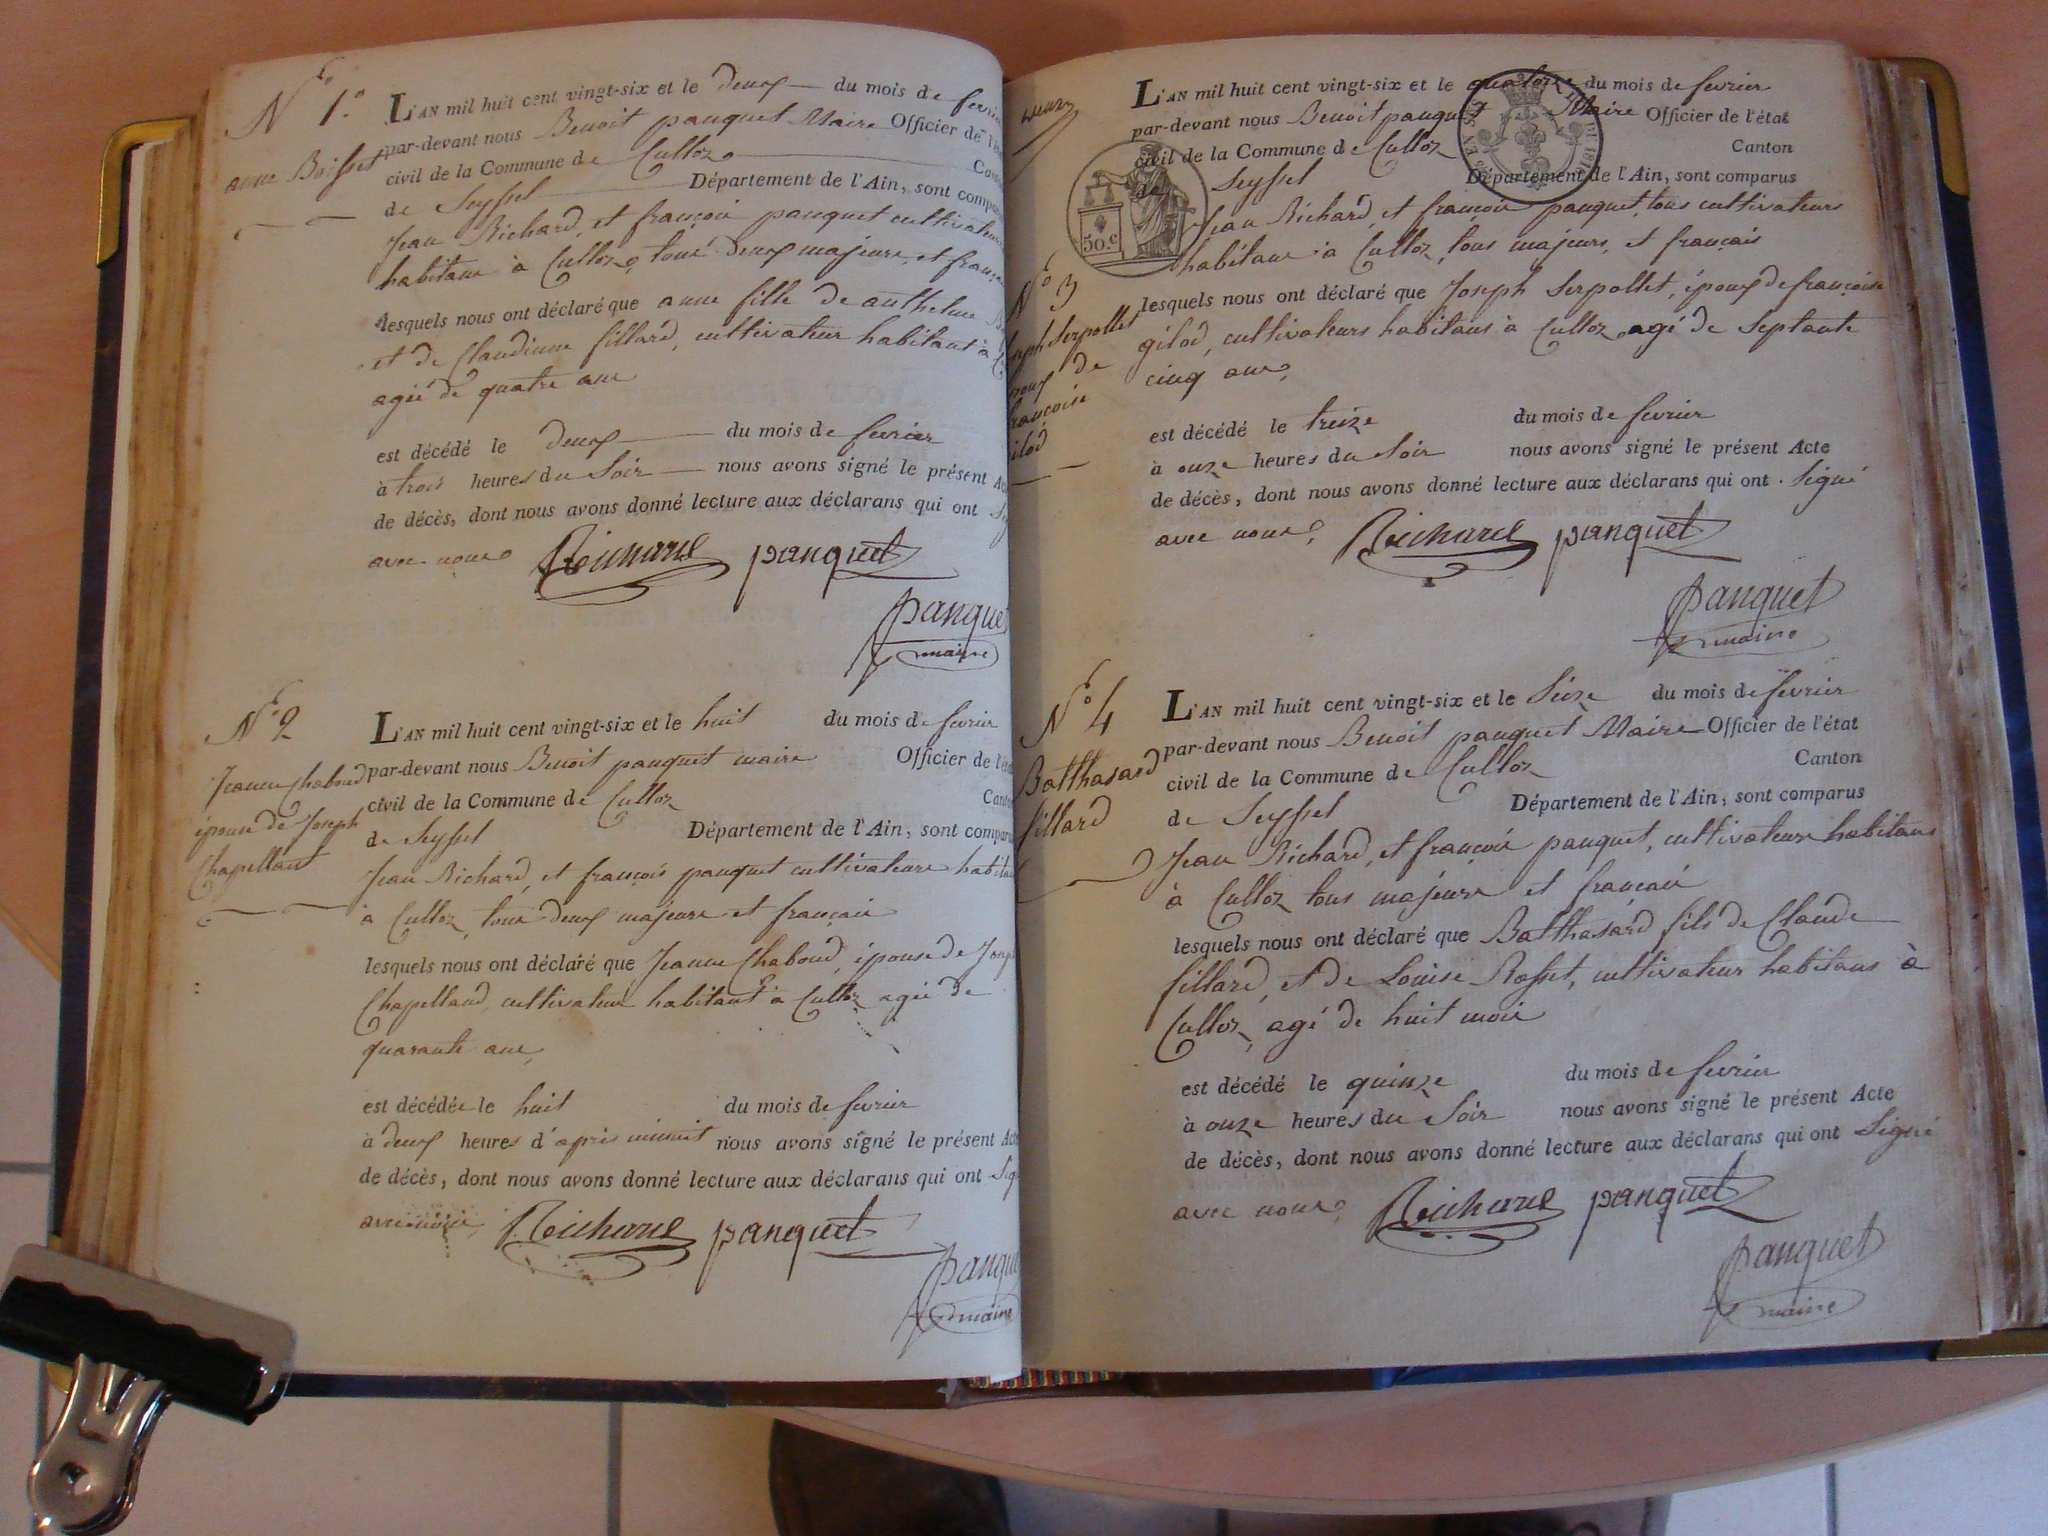 N.º 1.º
anne Boisset
L'AN mil huit cent vingt-six et le deux du mois de fevrier
par-devant nous Benoit pauquet Maire Officier de l'
civil de la Commune de Culloz
de Seyssel Département de l'Ain, sont
Jean Richard, et françois pauquet cultivateurs
habitans à Culloz, tous deux majeurs, et
lesquels nous ont déclaré que anne fille de anthelme
et de Claudinne fillard, cultivateur habitant à
agée de quatre ans
est décédé le deux du mois de fevrier
à trois heures du Soir nous avons signé le présent
de décès, dont nous avons donné lecture aux déclarans qui ont
avec nous Richard pauquet
pauquet
maire
N.º 2
Jeanne Chaboud
épouse de Joseph
Chapellant
L'AN mil huit cent vingt-six et le huit du mois de fevrier
par-devant nous Benoit pauquet maire Officier de
civil de la Commune de Culloz
de Seyssel Département de l'Ain, sont
Jean Richard, et françois pauquet cultivateurs
à Culloz, tous deux majeurs et français
lesquels nous ont déclaré que Jeanne Chaboud, épouse de
Chapelland, cultivateur habitant à Culloz agée de
quarante ans,
est décédée le huit du mois de fevrier
à deux heures d'après minuit nous avons signé le présent Acte
de décès, dont nous avons donné lecture aux déclarans qui ont
avec nous, Richard pauquet
pauquet
maire
L'AN mil huit cent vingt-six et le quatorze du mois de fevrier
par-devant nous Benoit pauquet Maire Officier de l'état
civil de la Commune de Culloz Canton
de Seyssel Département de l'Ain, sont comparus
50.c
Jean Richard, et françois pauquet, tous cultivateurs
habitans à Culloz, tous majeurs, et français
N.º 3
Serpollet
de
lesquels nous ont déclaré que Joseph Serpollet, époux de françoise
gilod, cultivateurs habitans à Culloz agé de Septante
cinq ans,
est décédé le treize du mois de fevrier
à onze heures du Soir nous avons signé le présent Acte
de décès, dont nous avons donné lecture aux déclarans qui ont Signé
avec nous, Richard pauquet
pauquet
maire
N.º 4
Balthasard
fillard
L'AN mil huit cent vingt-six et le Seize du mois de fevrier
par-devant nous Benoit pauquet Maire Officier de l'état
civil de la Commune de Culloz Canton
de Seyssel Département de l'Ain, sont comparus
Jean Richard, et françois pauquet, cultivateurs habitans
à Culloz tous majeurs et français
lesquels nous ont déclaré que Balthasard fils de Claude
fillard, et de Louise Rosset, cultivateur habitans à
Culloz, agé de huit mois
est décédé le quinze du mois de fevrier
à onze heures du Soir nous avons signé le présent Acte
de décès, dont nous avons donné lecture aux déclarans qui ont Signé
avec nous, Richard pauquet
pauquet
maire